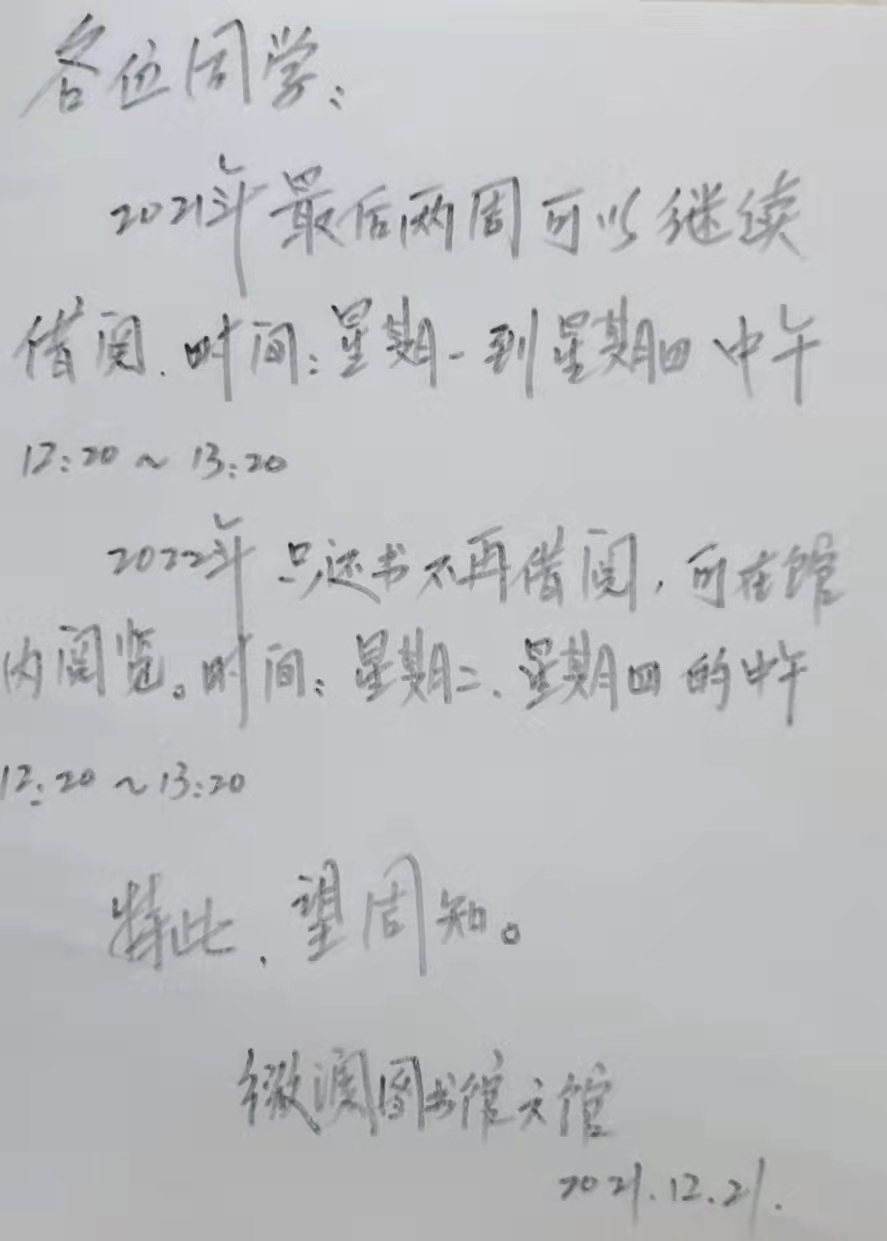 各位同学：
2021年最后两周可以继续
借阅.时间：星期一到星期四中午
12:20~13:20
2022年只还书不再借阅，可在馆
内阅览。时间：星期二、星期四的中午
12:20~13:20
特此、望周知。
图书馆文馆
2021.12.21.